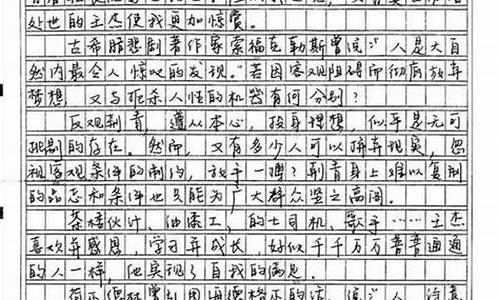 处世的王杰使我更加惊赏。
古希腊悲剧著作家索福克勒斯曾说："人是大自
然内最令人惊叹的发现。"若因客观阻碍而彻底放弃
梦想，又与扼杀人性的机器有何分别？
反观荆青，遵从本心，投身理想，似乎是无可
挑剔的存在。然而，又有多少人可以摒弃现实，忽
视客观条件的制约，放手一搏？荆青身上难以复制
的品志和条件也只能为广大群众竖之高阁。
茶楼伙计、油漆工、的士司机、歌手……王杰
喜欢并感恩，学习并成长，好似千千万万普普通通
的人一样，他实现了自我的满足。